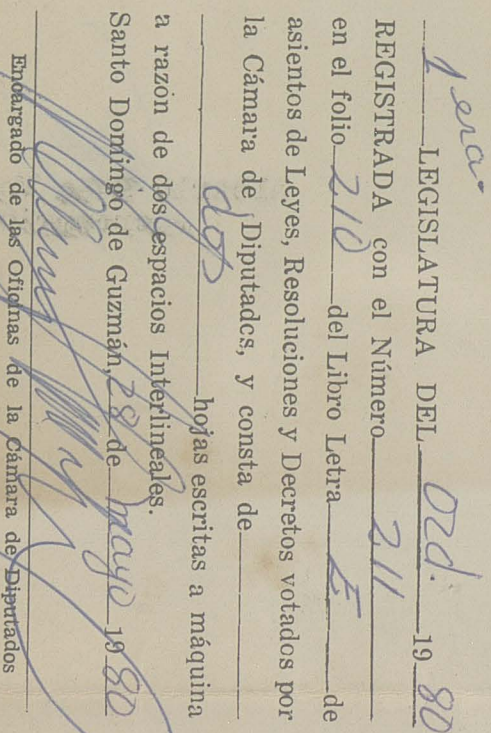 1era. LEGISLATURA DEL Ord. 1980
REGISTRADA con el Número 211
en el folio 210 del Libro Letra E de
asientos de Leyes, Resoluciones y Decretos votados por
la Cámara de Diputados, y consta de
dos hojas escritas a máquina
a razón de dos espacios Interlineales.
Santo Domingo de Guzmán, 28 de mayo 1980
Encargado de las Oficinas de la Cámara de Diputados